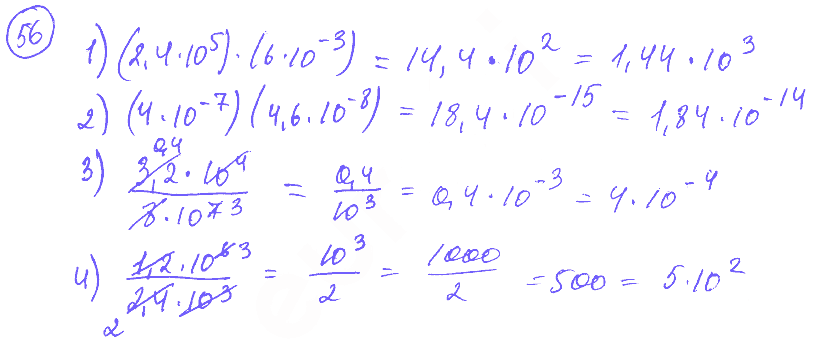 56
1) (2,4·10⁵)·(6·10⁻³) = 14,4·10² = 1,44·10³
2) (4·10⁻⁷)(4,6·10⁻⁸) = 18,4·10⁻¹⁵ = 1,84·10⁻¹⁴
0,4
3) 3,2·10⁴ / 8·10⁷ 3 = 0,4 / 10³ = 0,4·10⁻³ = 4·10⁻⁴
4) 1,2·10⁶ 3 / 2,4·10³ = 10³ / 2 = 1000 / 2 = 500 = 5·10²
2